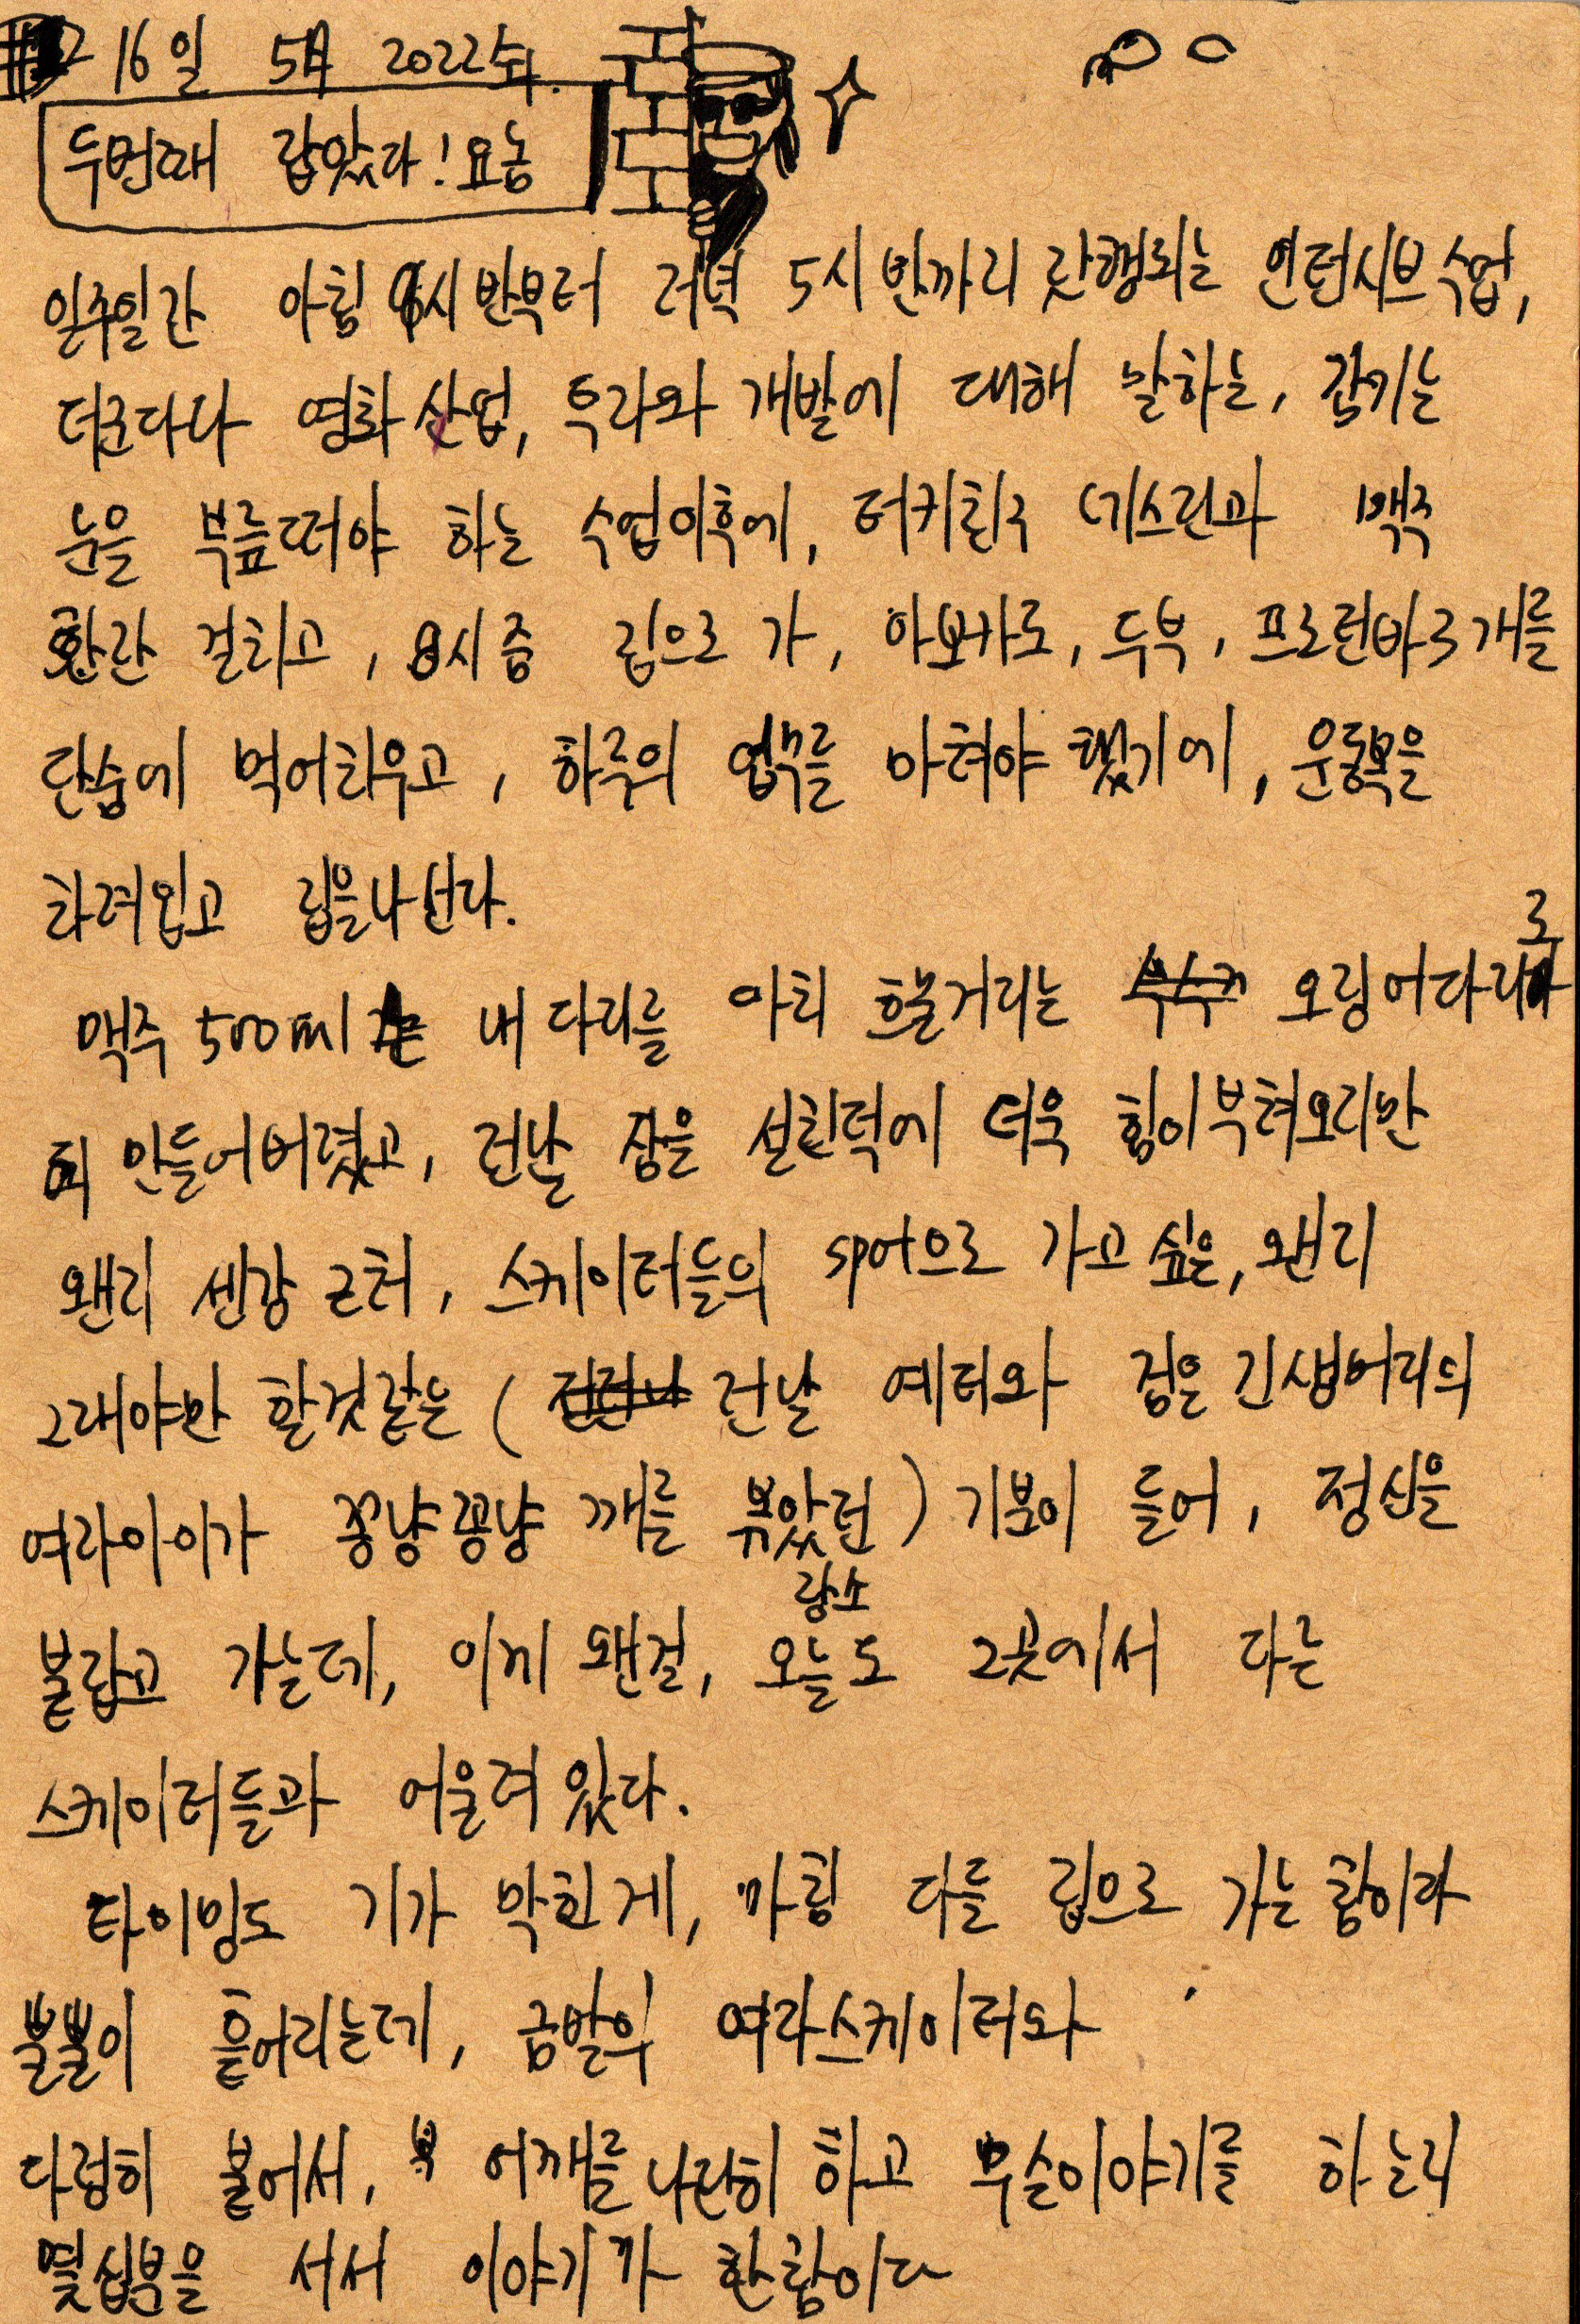 16일 5月 2022 수.
두번째 잡았다! 요놈
일주일간 아침 9시반부터 저녁 5시 반까지 진행되는 인텐시브 수업,
더군다나 영화 산업, 투자와 개발에 대해 말하는, 감기는
눈을 부릅떠야 하는 수업이후에, 터키친구 네스린과 맥주
한잔 걸치고, 8시쯤 집으로 가, 아보카도, 두부, 프로틴바 3개를
단숨에 먹어치우고, 하루의 업무를 마쳐야 했기에, 운동복을
차려입고 집을나선다.
맥주 500ml는 내 다리를 마치 흐물거리는 오징어다리로
만들어버렸고, 전날 잠을 설친덕에 더욱 힘이부쳐오지만
왠지 센강 근처, 스케이터들의 spot으로 가고 싶은, 왠지
그래야만 할것같은 ( 전날 예터와 검은 긴생머리의
여자아이가 꽁냥꽁냥 깨를 볶았던 ) 기분이 들어, 정신을
붙잡고 가는데, 이게 왠걸, 오늘도 그곳에서 다른
장소
스케이터들과 어울려 있다.
타이밍도 기가 막힌게, 마침 다들 집으로 가는 참이라
뿔뿔이 흩어지는데, 금발의 여자스케이터와
다정히 붙어서, 어깨를 나란히 하고 무슨이야기를 하는지
몇십분을 서서 이야기가 한참이다